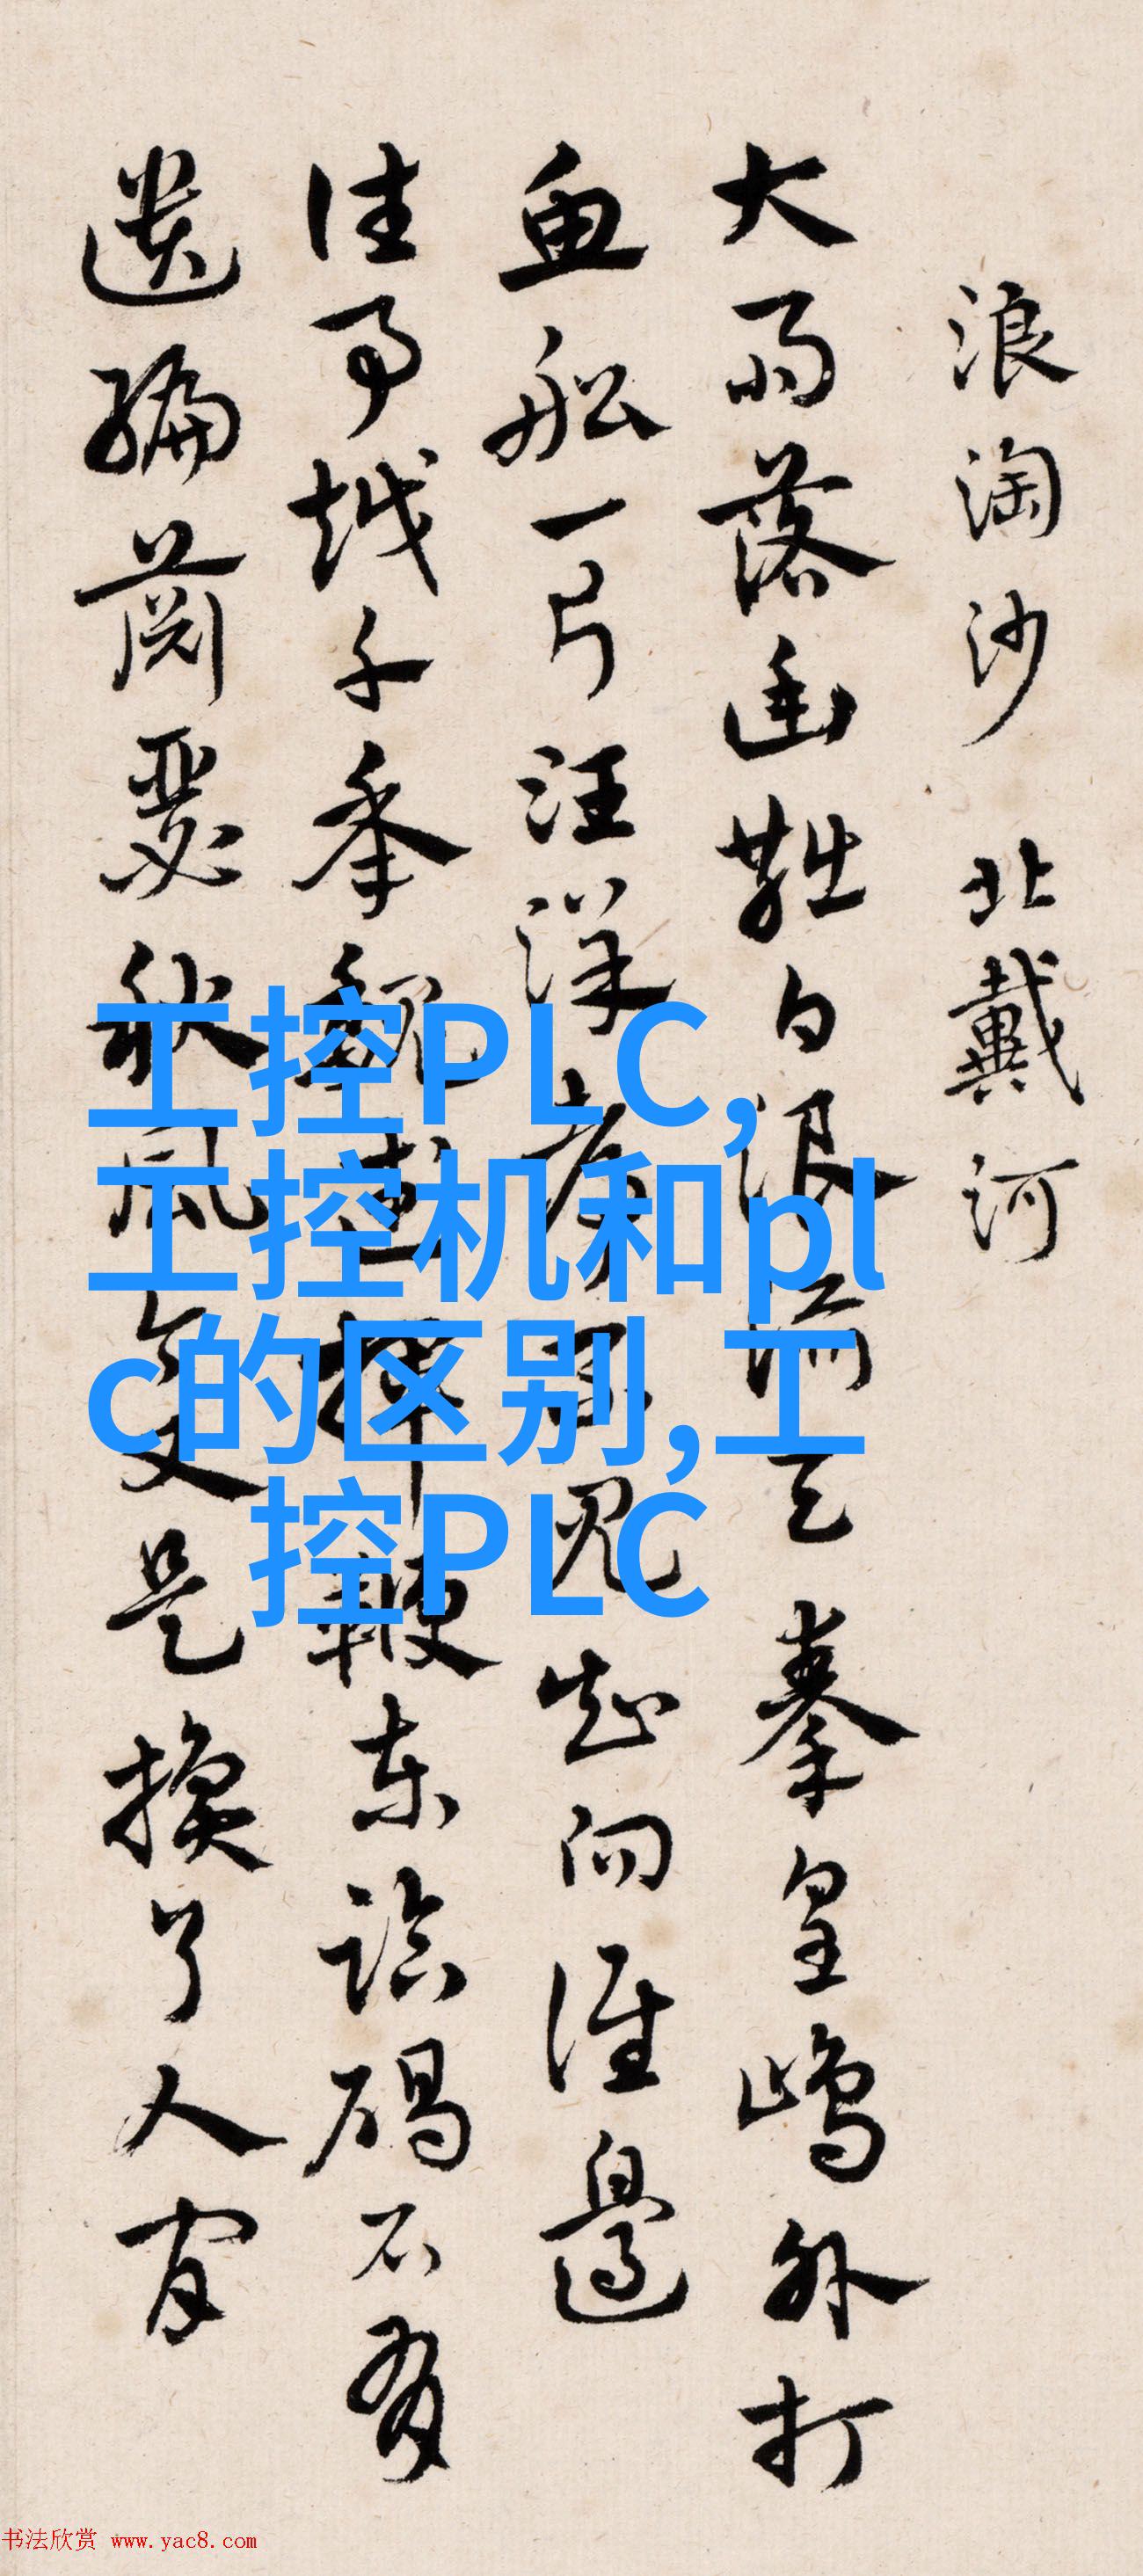 浪淘沙 北戴河
大雨落幽燕白浪滔天秦皇島外打
魚船一片汪洋都不見知向誰邊
往事越千年魏武揮鞭東臨碣石有
遺編蕭瑟秋風今又是換了人間
工控PLC,
工控机和pl
c的区别,工
控PLC
书法欣赏 www.yac8.com